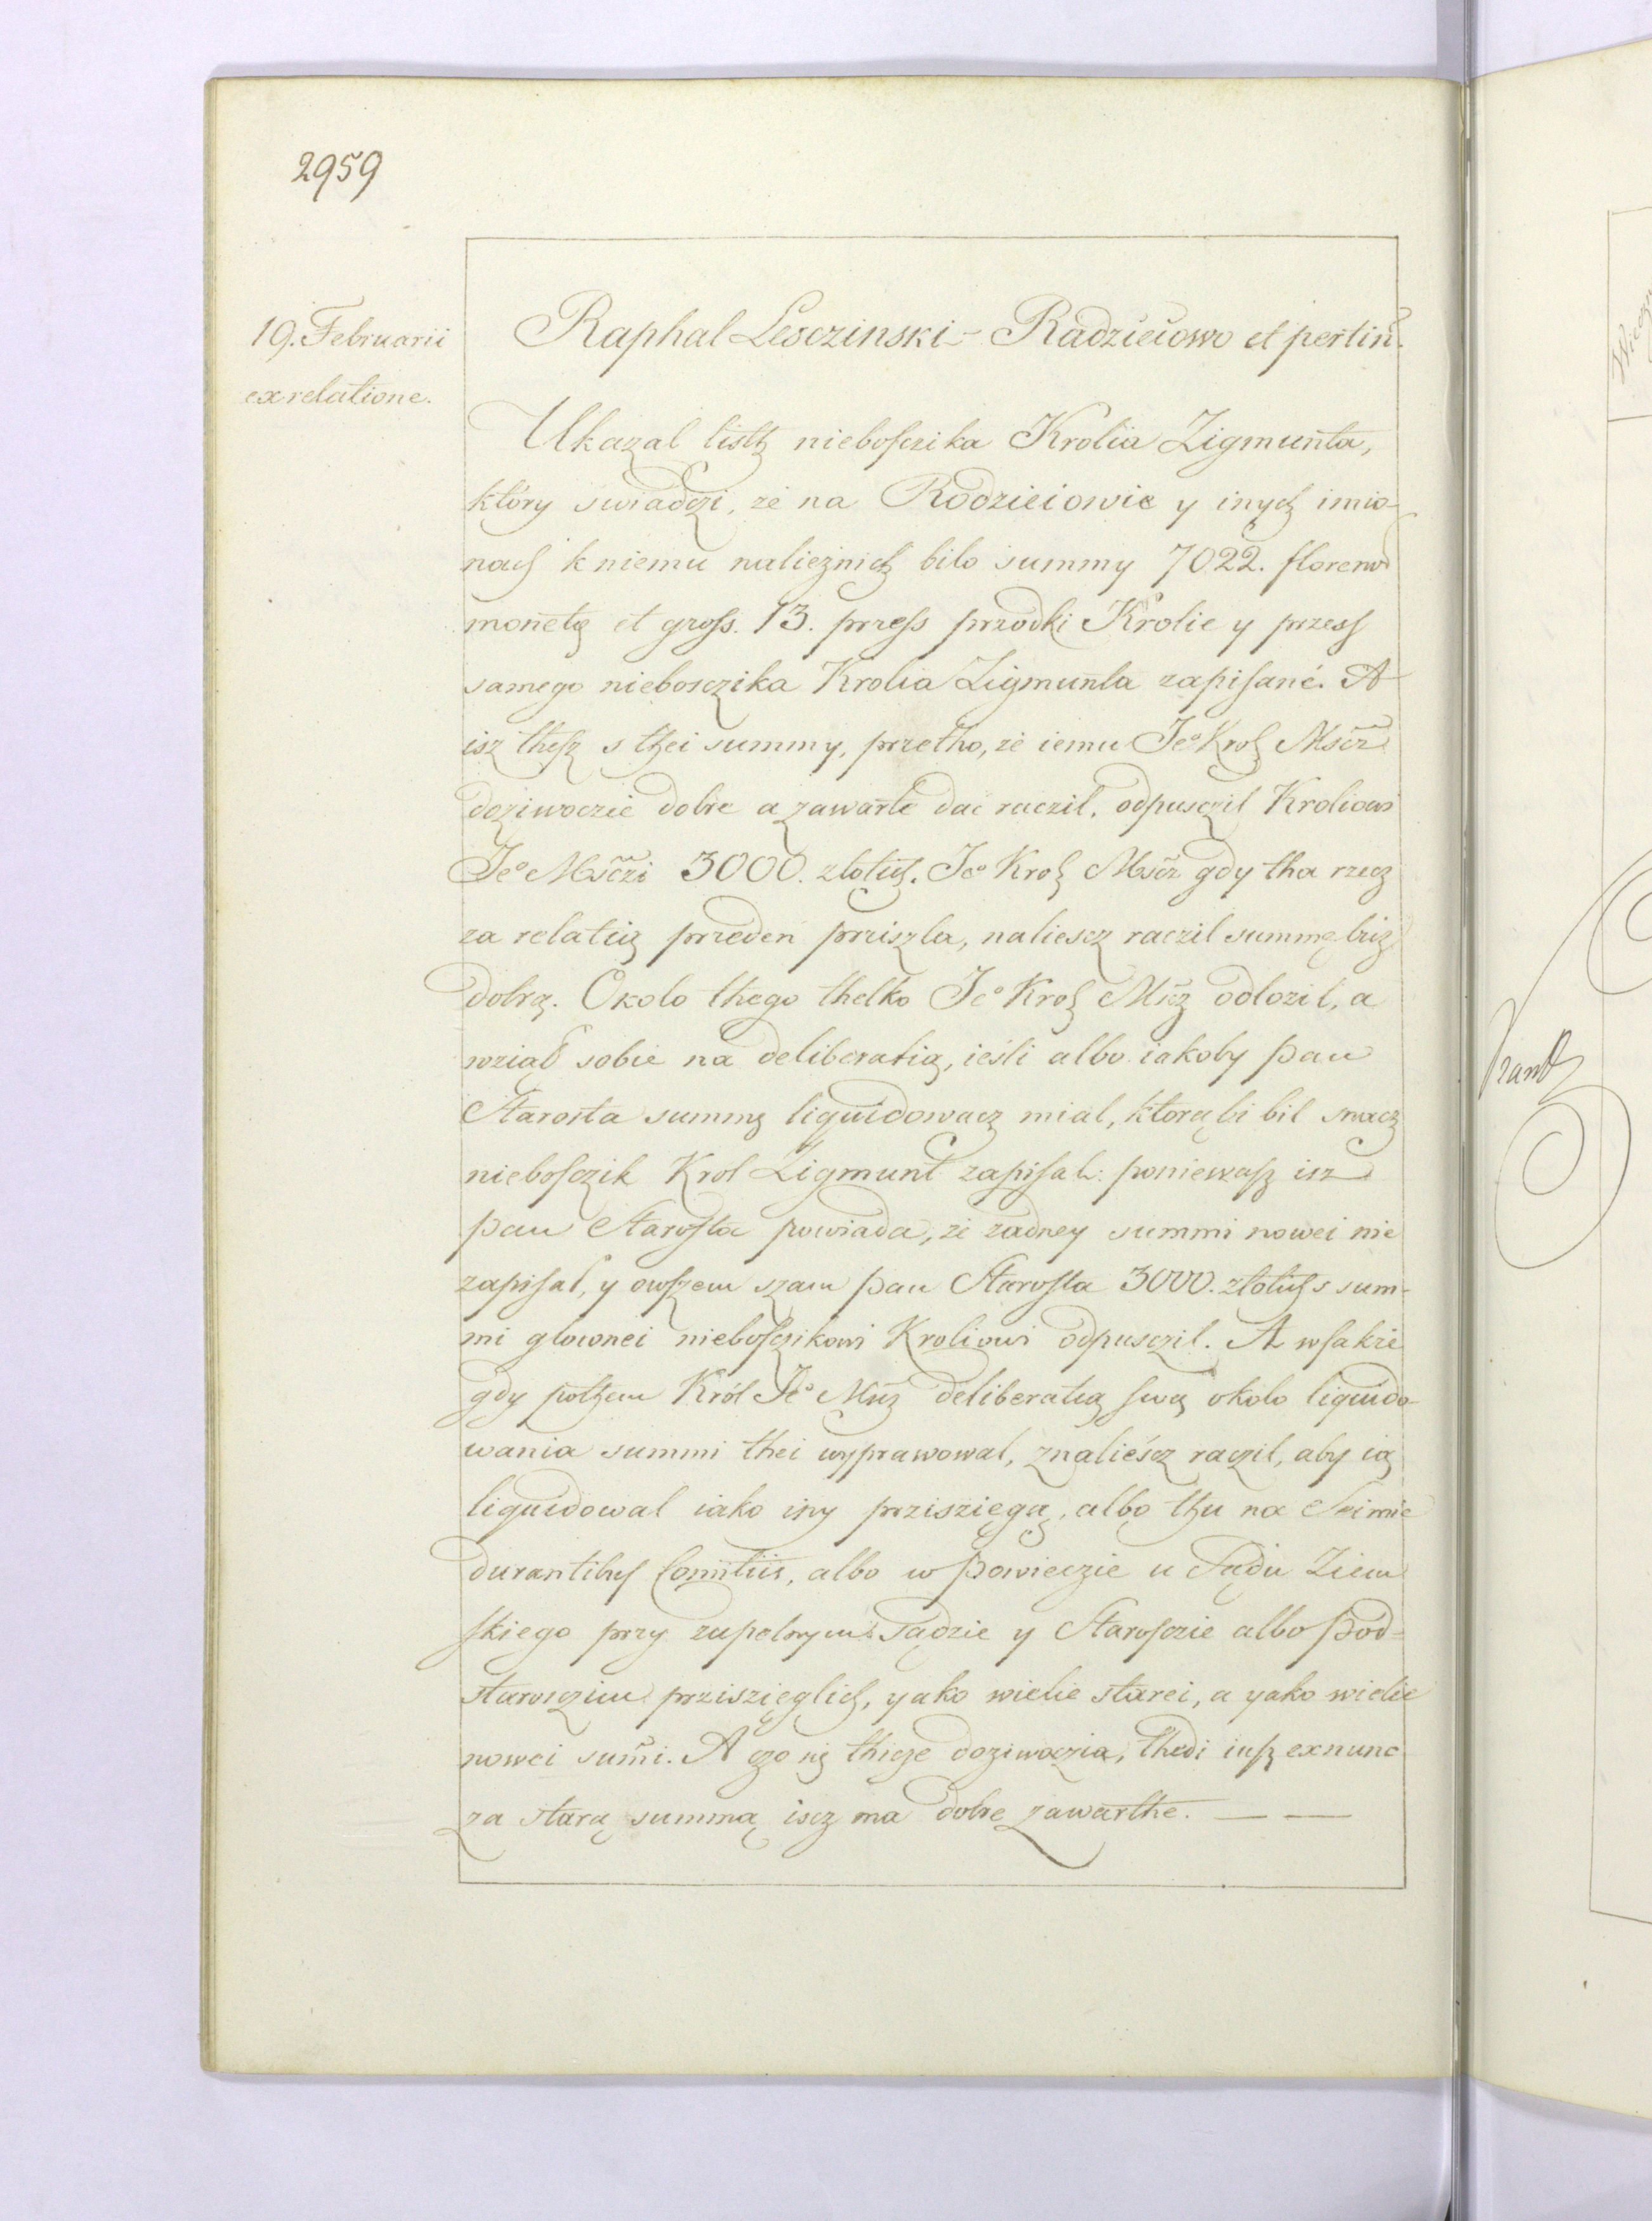 2959
19. Februarii
ex relatione.
Raphal Lesczinski – Radzieiowo et pertin.
Ukazal listh nieboſczika Krolia Zigmunta,
który swiadczi, ze na Rodzieiowie y inych imio-
nach k niemu nalieznich bilo summy 7022. floreno
moneta et groſs. 13. prrzeſs przodki Krolie y przesſ
samego niebosczika Krolia Zigmunta zapiſané. A
isz theſz s thei summy, przetho, ze iemu Jeº Krol Mścz
doziwoczie dobre a zawarte dac raczil, odpusczil Kroliowi
Jeº Mśczi 3000. zlotich. Jeº Krol Mścz gdy tha rzecz
za relatią przeden prziszla, naliescz raczil summę bicz
dobrą. Okolo thego thelko Jeº Krol Mśz odlozil, a
wziął sobie na deliberatią, ieśli albo iakoby pan
Starosta summę liquidowacz mial, którąbi bil snacz
nieboſczik Krol Zigmunt zapiſał: poniewaſz isz
pan Staroſta powiada, ze zadney summi nowei nie
zapiſal, y owſzem szam pan Staroſta 3000. złotich s sum-
mi glownei nieboſczikowi Kroliowi odpusczil. A wſakże
gdy pothem Król Jeº Mśz deliberatią ſwą okolo liquido-
wania summi thei wyprawowal, znalieścz raczil, aby ią
liquidowal iako iny prziszięgą, albo thu na Seimie
durantibuſ Comitiis, albo w Powieczie u Sądu Ziem
ſkiego przy zupelnym Sądzie y Staroſczie albo Pod-
starosczim prziszięglich, yako wielie starei, a yako wielie
nowei sumi. A czo się thicze doziwoczia, thedi iuſz exnunc
za starą summą iscz ma dobre zawarthe. — —